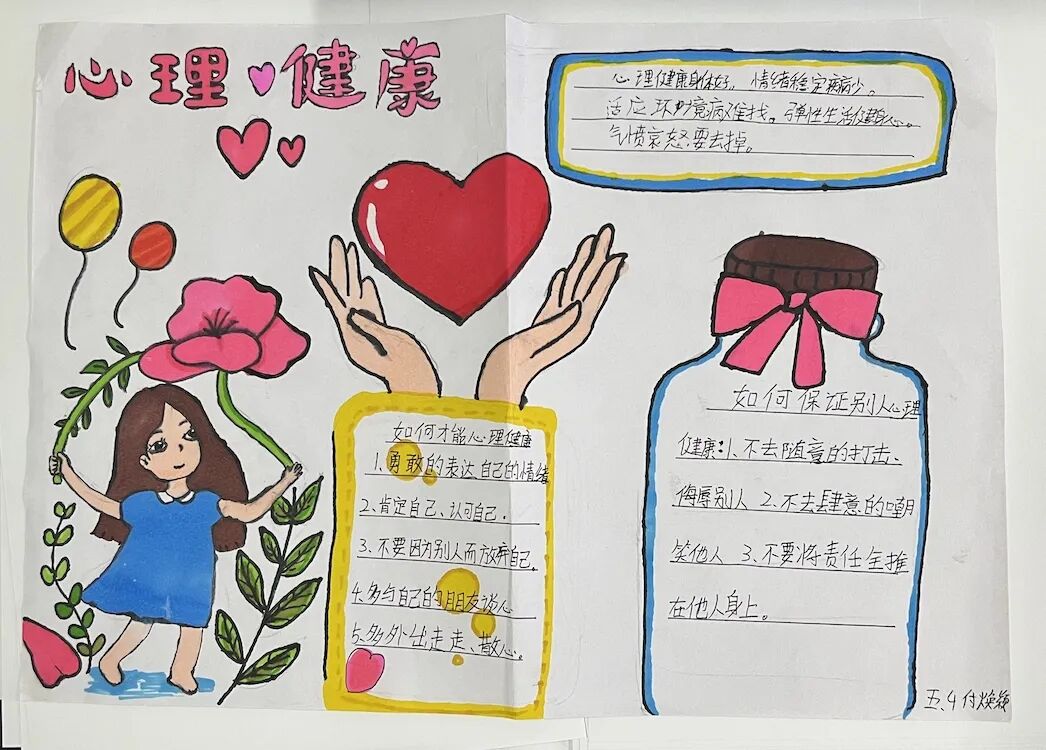 心理健康
心理健康身体好，情绪稳定疾病少。
适应环境病难找。弹性生活健身心。
气愤哀怒要去掉。
如何才能心理健康
1、勇敢的表达自己的情绪
2、肯定自己、认可自己.
3、不要因为别人而放弃自己。
4、多与自己的朋友谈心
5、多外出走走、散心。
如何保证别人心理
健康：1、不去随意的打击、
侮辱别人 2、不去肆意的嘲
笑他人 3、不要将责任全推
在他人身上。
五、4 付焕颖